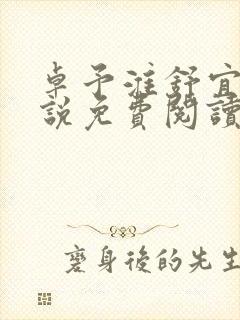 卓予淮舒宜
說免費閱讀
變身後的先生